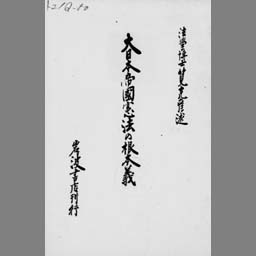 法學博士筧克彦述
大日本帝國憲法の根本義
岩波書店刊行